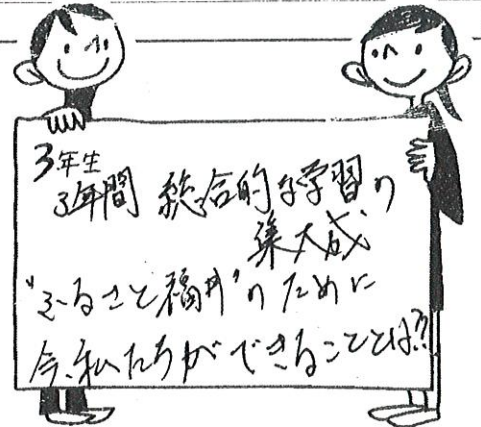 3年生
3年間 総合的な学習の
集大成
"ふるさと福井"のために
今、私たちができることとは??